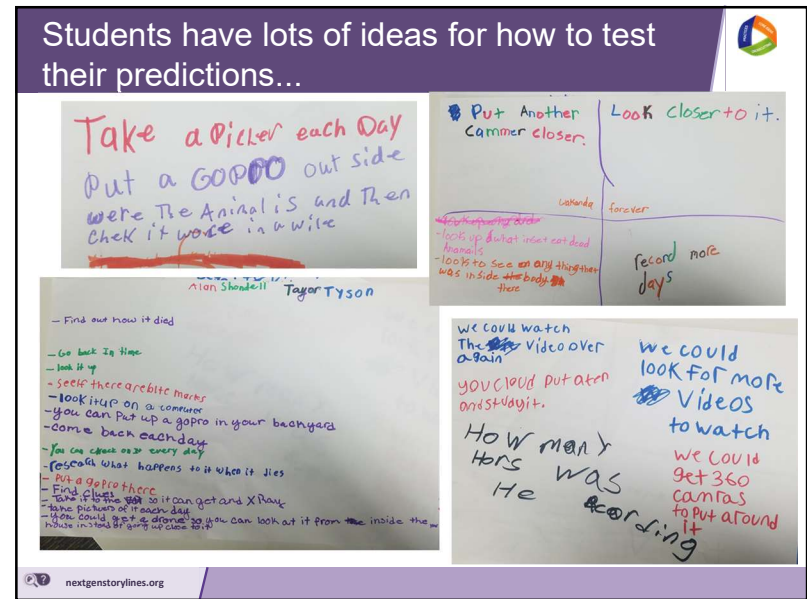 Students have lots of ideas for how to test
their predictions...
Take a Picker each Day
Put a GOPRO out side
were The Animal is and Then
Chek it in a wile
Put Another
Cammer closer.
Look closer to it.
wakanda
forever
- look up what inset eat dead
Anamails
- look to see any thing that
was inside body
there
record more
days
Alan Shondell Tayor Tyson
- Find out how it died
- Go back In time
- look it up
- see if there are bite marks
- look it up on a computor
- you can put up a gopro in your backyard
- come back each day
- You can check on it every day
- research what happens to it when it dies
- Put a gopro there
- Find clues
- Take it to the so it can get and X Ray
- take pictures of it each day
- You could get a drone so you can look at it from inside the
house instead of going up close to it
we could watch
The Video over
again
you cloud put a ten
and study it.
How many
Hors was
He recording
we could
look for more
Videos
to watch
we could
get 360
camras
to put around
it
nextgenstorylines.org